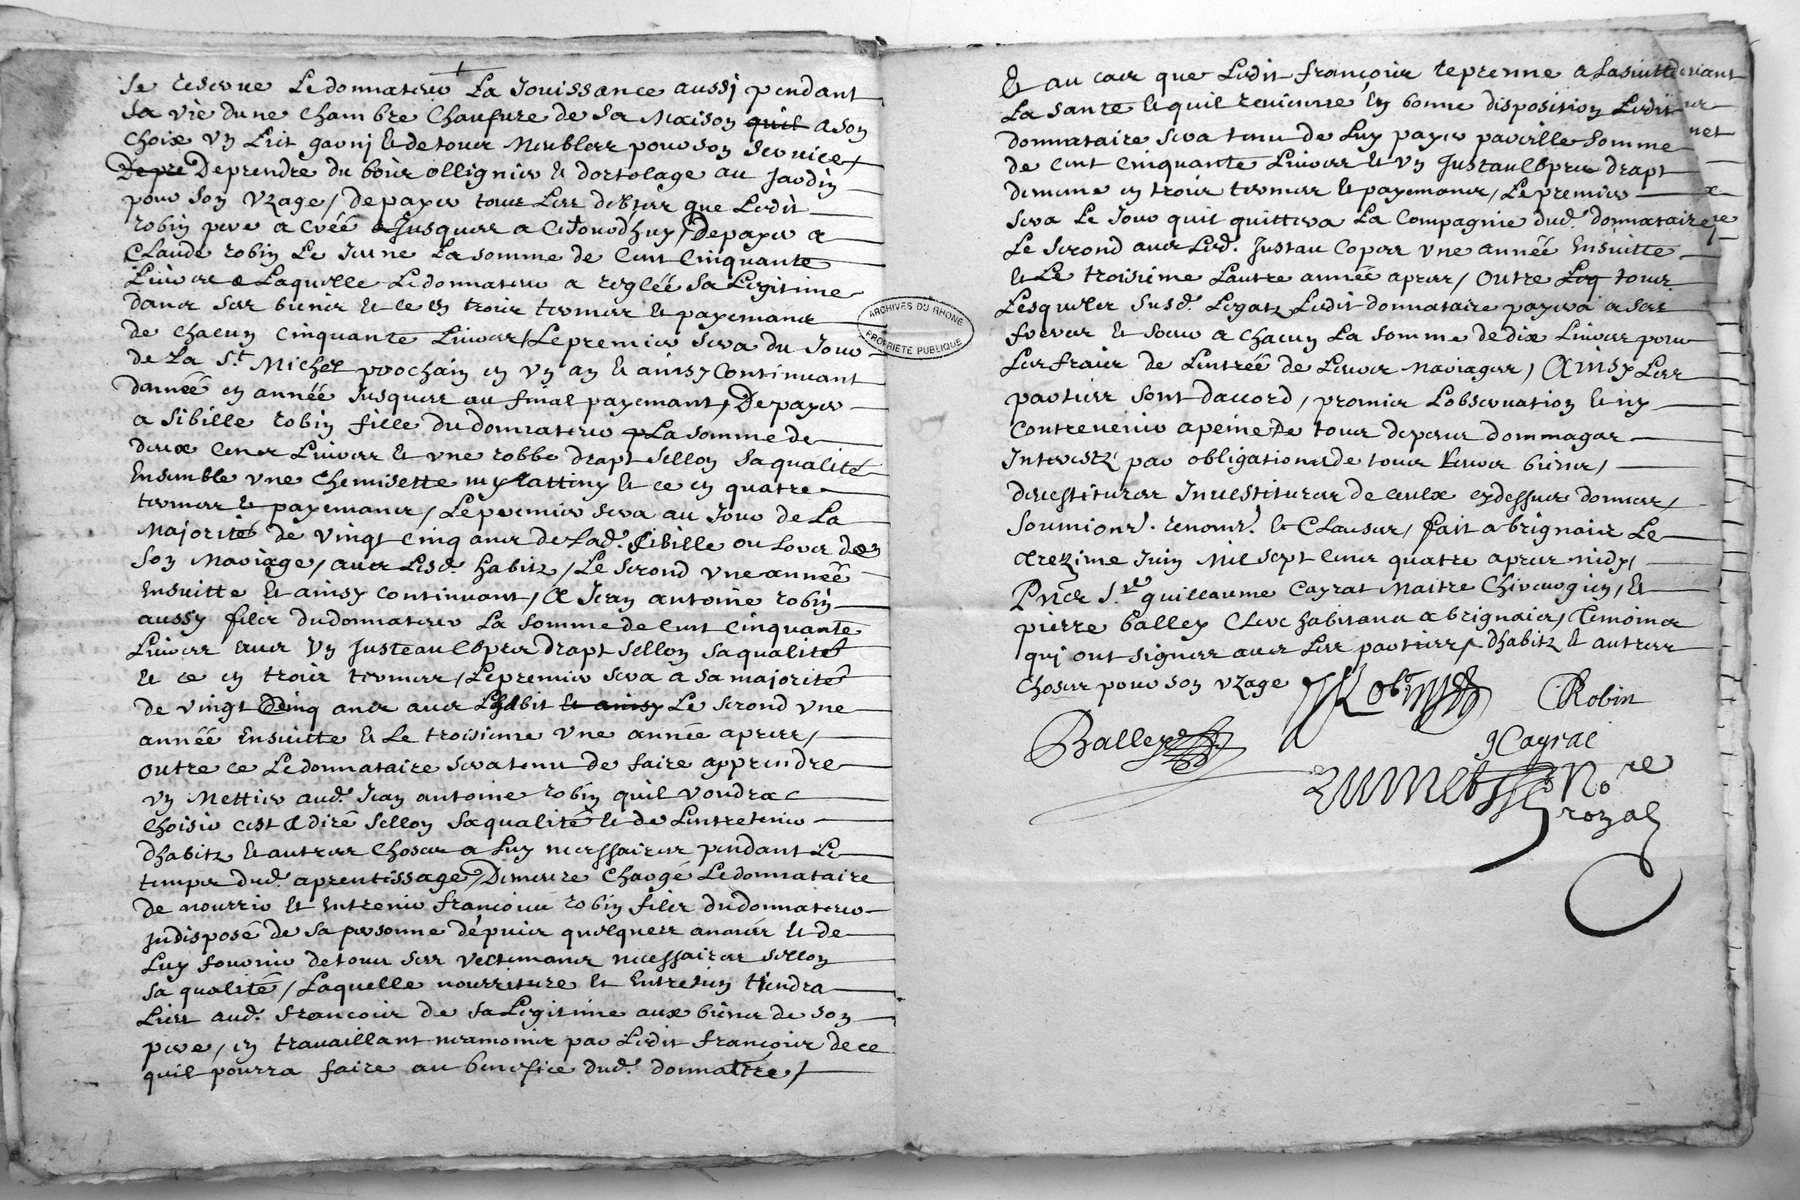 se reserve le donnateur la jouissance aussj pendant
sa vie dune chambre chaufure de sa maison quil a son
choix un lict garnj et de tous meubles pour son service /
De pre De prendre du bois ollignier et dortolage au jardin
pour son uzage / de payer tous les debtes que ledit
robin pere a créé jusques a cejourdhuy / De payer a
Claude robin le jeune la somme de cent cinquante
livres a laquelle le donnateur a reglée sa legitime
dans ses biens et ce en trois termes et payemans
de chacun cinquante livres / le premier sera du jour
de la St Michel prochain en un an et ainsy continuant
dannée en année jusques au final payemant / De payer
a sibille robin fille du donnateur la somme de
deux cens livres et une robbe drapt sellon sa qualité
ensemble une chemisette my sattiny et ce en quatre
termes et payemans / le premier sera au jour de la
majorité de vingt cinq ans de lad. sibille ou lors de
son mariage / avec lesd. habitz / le second une année
ensuitte et ainsy continuant / A jean antoine robin
aussy filz du donnateur la somme de cent cinquante
livres avec un justeaucorps drapt sellon sa qualité
et ce en trois termes / le premier sera a sa majorité
de vingt cinq ans avec lhabit et ainsy le second une
année ensuitte et le troisieme une année apres /
outre ce le donnataire sera tenu de faire apprendre
un mettier aud. jean antoine robin quil voudra
choisir cest a dire sellon sa qualité et de lentretenir
dhabitz et autres choses a luy necessaires pendant le
temps dud. aprentissage / Demeure chargé le donnataire
de nourrir et entrenir françois robin filz du donnateur
jndisposé de sa personne dépuis quelques années et de
luy fournir de tous ses vestemans necessaires sellon
sa qualité / laquelle nourriture et entretien tiendra
lieu aud. françois de sa legitime aux biens de son
pere / en travaillant neamoins par ledit françois de ce
quil pourra faire au benefice dud. donnatre /
Et au cas que ledit françois reprenne a lasuitte
la sante et quil revienne en bonne disposition ledit
donnataire sera tenu de luy payer pareille somme
de cent cinquante livres et un justaucorps drapt
de mesme en trois termes et payemans / le premier
sera le jour quil quittera la compagnie dud. donnataire
le second avec led. justau corps une année ensuitte
et le troisieme lautre année apres / outre leq tous
lesquels susd. legatz ledit donnataire payera a ses
freres et soeur a chacun la somme de dix livres pour
les frais de lentrée de leurs mariages / Ainsy les
parties sont daccord / promis lobservation et ny
contrevenir a peine de tous depens dommages
interestz par obligations de tous leurs biens /
devestitures investitures de ceulx cydessus donnés /
soumions. renons. et clauses / fait a brignais le
treizime juin mil sept cens quatre apres midy /
Pnts Sr guillaume Cayrat maitre chirurgien / et
pierre balley clerc habitans a brignais / temoins
qui ont signes avec les parties / dhabitz et autres
choses pour son uzage
Robin
Robin
Balley
g Cayrat
No re
royal
ARCHIVES DU RHONE
PROPRIETE PUBLIQUE